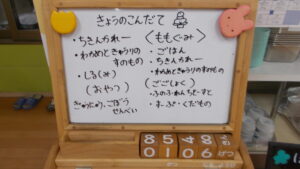 きょうのこんだて
・ちきんかれー
・わかめときゅうりの
すのもの
・しるみ(
(おやつ)
ぎゅうにゅう、ごぼう
せんべい
(ももぐみ)
・ごはん
・ちきんかれー
・わかめときゅうりのすのもの
(ごごしょく)
・ふのふれんちとーすと
・すーぷ・くだもの